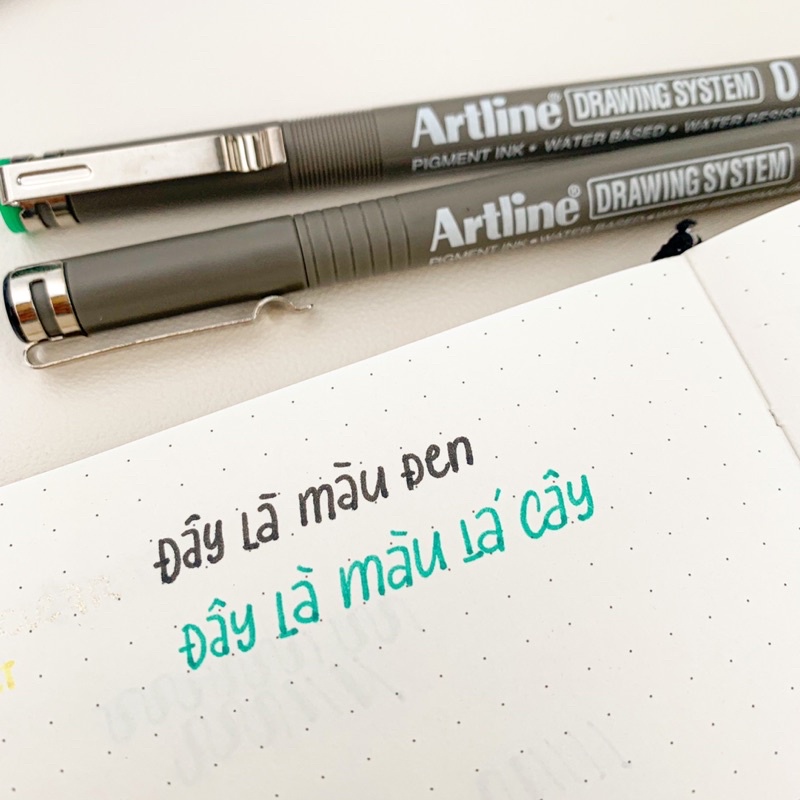 Artline® DRAWING SYSTEM
PIGMENT INK • WATER BASED • WATER RESIST
Artline® DRAWING SYSTEM
PIGMENT INK • WATER BASED
Đây là màu đen
Đây là màu lá cây